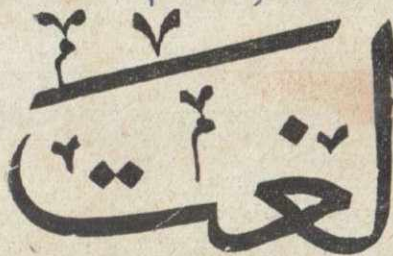 لغت